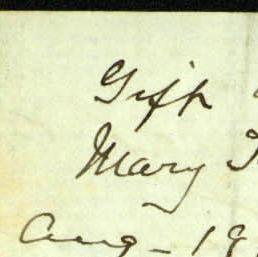 Gift
Mary
Aug - 19